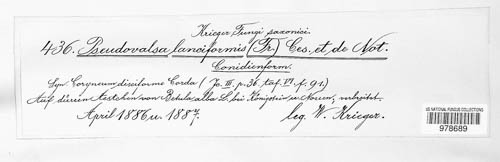 Krieger Fungi saxonici.
436. Pseudovalsa lanciformis (Fr.) Ces. et de Not.
Conidienform.
Syn. Coryneum disciforme Corda (Jc. III. p. 36. taf. VI. f. 91.)
Auf dürren Aestchen von Betula alba L. bei Königstein u. Nossen, verbreitet.
April 1886 u. 1887. leg. W. Krieger.
US NATIONAL FUNGUS COLLECTIONS
978689